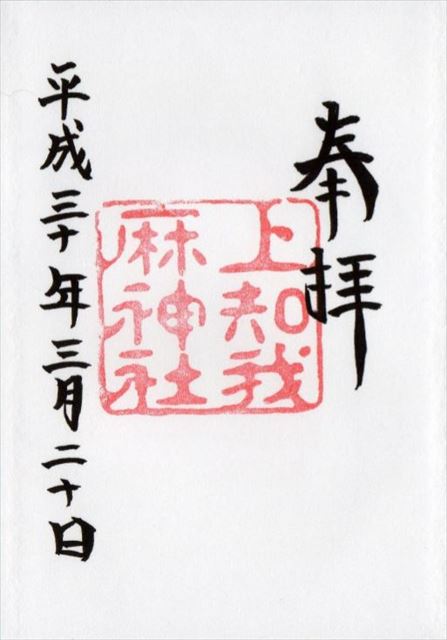 奉拝
上知我
麻神社
平成三十年三月二十日